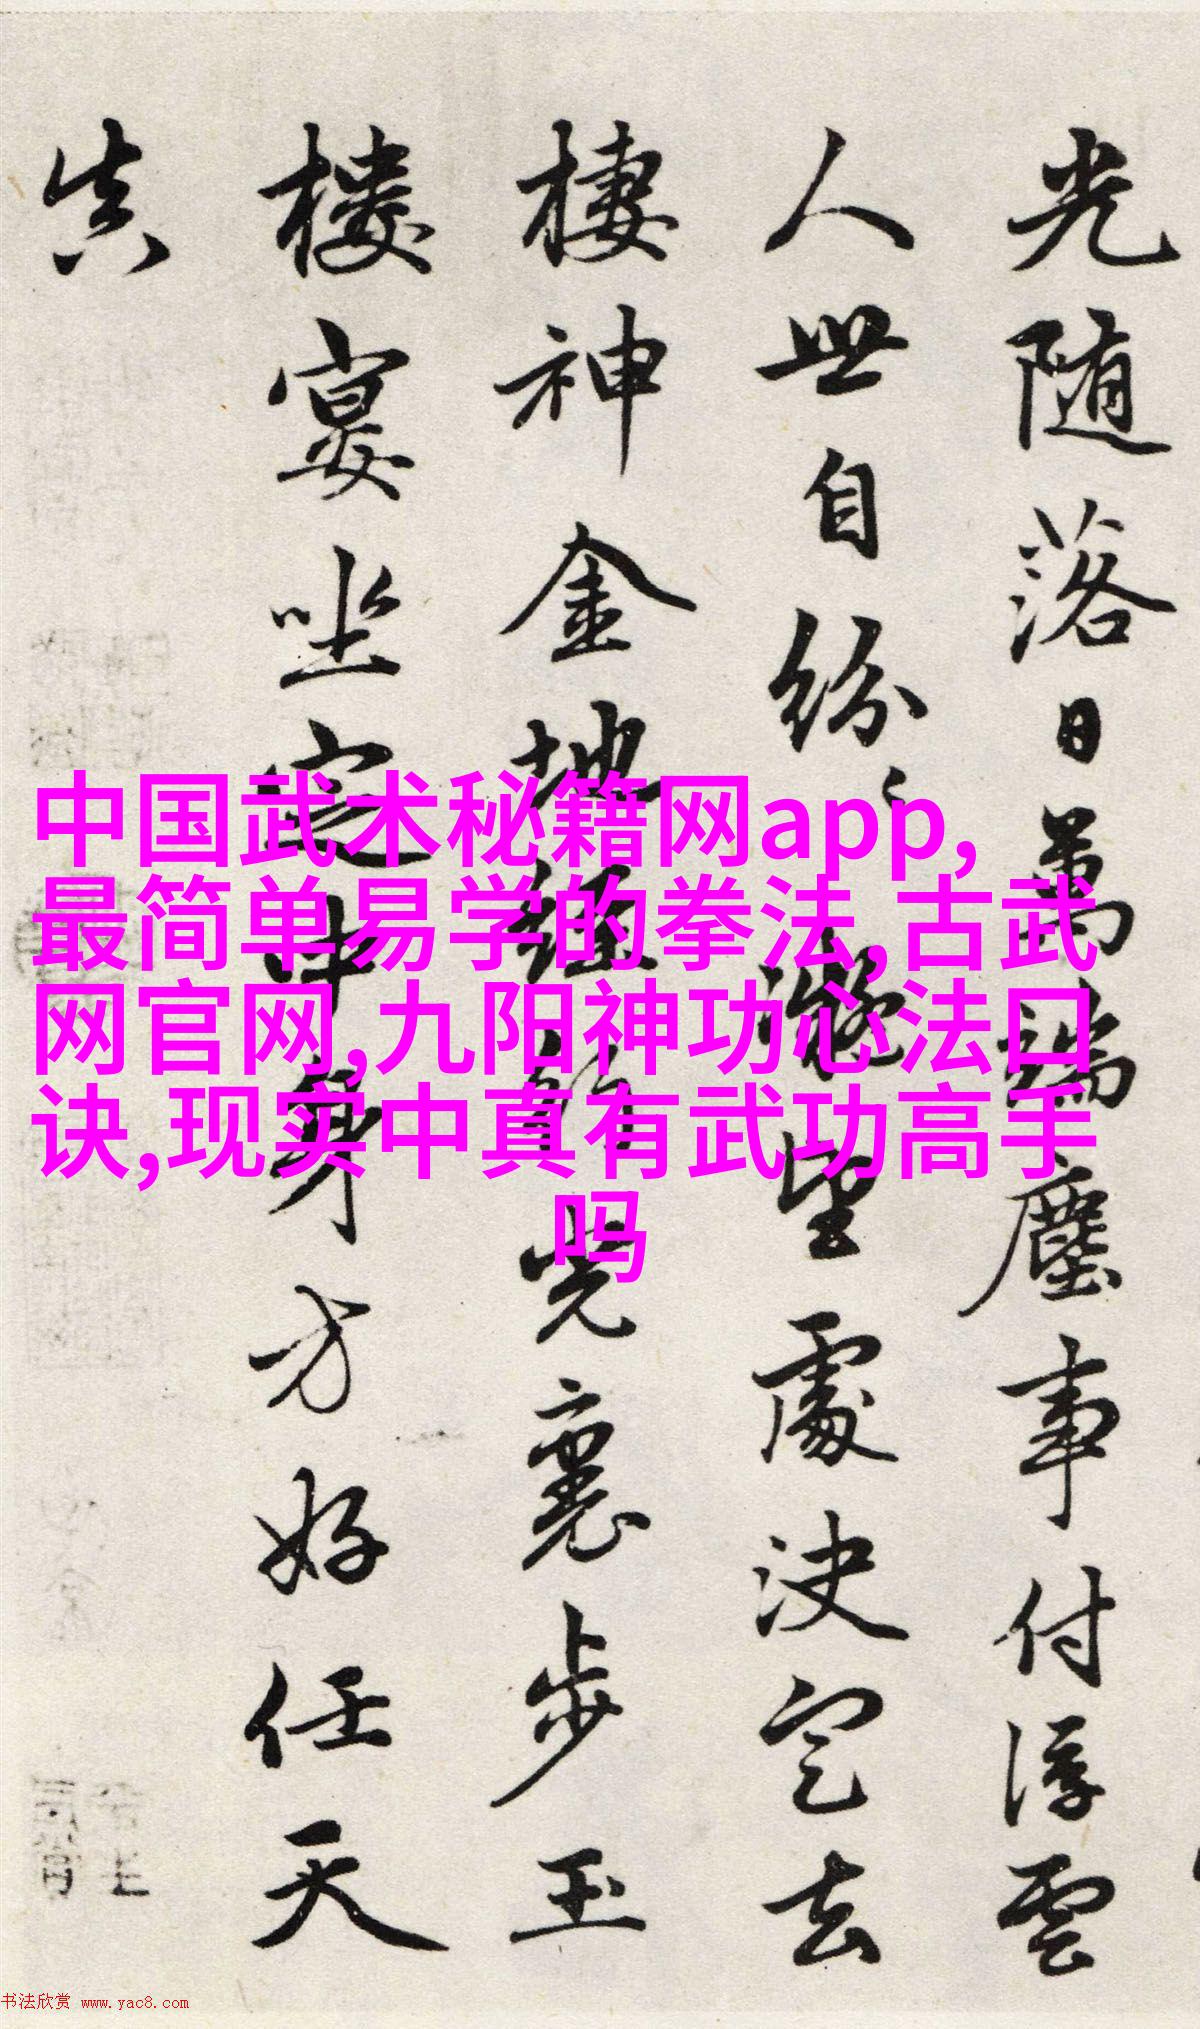 光随落日萬端塵事付浮雲
人世自紛〻凝望處決定去
棲神金地經行光裏步玉
樓宴坐定中身方好任天
真
中国武术秘籍网app,
最简单易学的拳法,古武
网官网,九阳神功心法口
诀,现实中真有武功高手
吗
书法欣赏 www.yac8.com